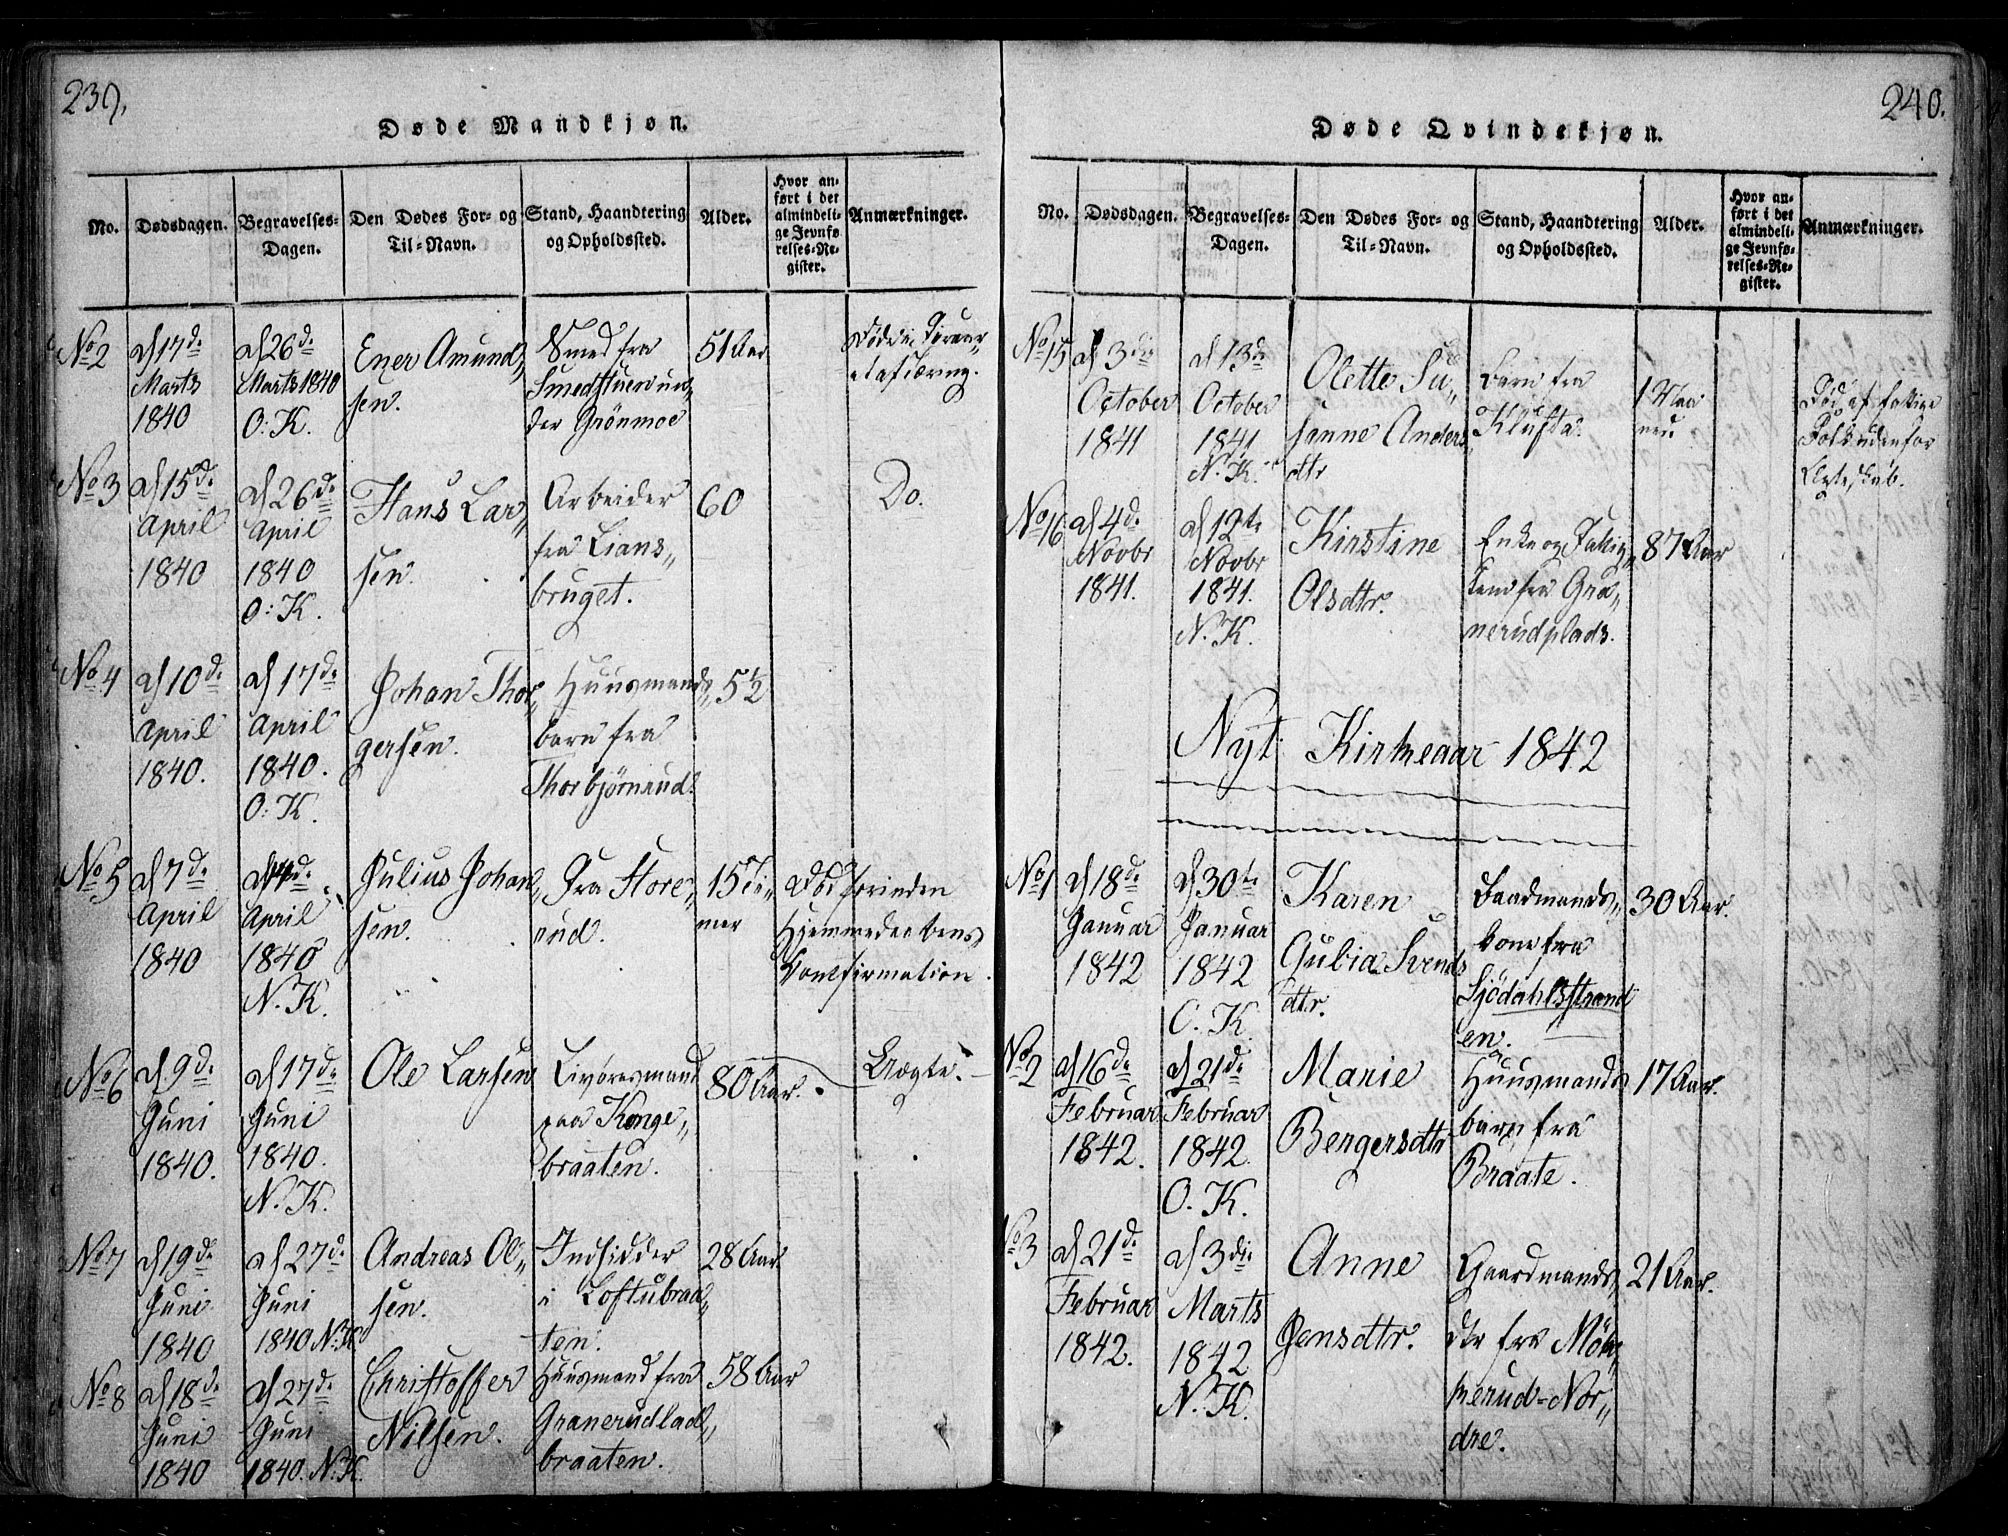 239.
Døde Mandkjøn.
No.
Dødsdagen.
Begravelses-
Dagen.
Den Dødes For- og
Til-Navn.
Stand, Haandtering
og Opholdssted.
Alder.
Hvor an-
ført i det
almindeli-
ge Jevnfø-
relses-Re-
gister.
Anmærkninger.
No 2
d 17de
Marts
1840
d 26de
Marts 1840
O: K.
Ener Amund„
sen.
Smed fra
Smedstuen un„
der Grönmoe
51 Aar
No 3
d 15de
April
1840
d 26de
April
1840
O: K.
Hans Lar„
sen.
Arbeider
fra Lians„
bruget.
60
Do.
No 4
d 10de
April
1840.
d 17de
April
1840.
O: K.
Johan Thor„
gersen.
Huusmands„
barn fra
Thorbjörnrud.
5½
No 5
d 7de
April
1840
April
1840
N. K.
Julius Johan„
sen.
Fra Hore„
rud.
15 Ti„
mer
Død forinden
Hjemmedaabens
Confirmation.
No 6
d 9de
Juni
1840.
d 17de
Juni
1840.
N. K.
Ole Larsen
Livøresmand
paa Konge„
braaten.
80 Aar.
Ægte.
No 7
d 19de
Juni
1840
d 27de
Juni
1840 N. K.
Andreas Ol„
sen.
Indsidder
i Loftubraa„
ten.
28 Aar
No 8
d 18de
Juni
1840
d 27de
Juni
1840. N. K.
Christoffer
Nilsen.
Huusmand fra
Granerudlad„
braaten.
58 Aar
240.
Døde Qvindekjøn.
No.
Dødsdagen.
Begravelses-
Dagen.
Den Dødes For- og
Til-Navn.
Stand, Haandtering
og Opholdssted.
Alder.
Hvor an-
ført i det
almindeli-
ge Jevnfø-
relses-Re-
gister.
Anmærkninger.
No 15
d 3die
October
1841
d 13de
October
1841
N. K.
Olette Su„
sanne Anders„
dtr
Barn fra
Klufta.
1 Maa
ned
Død af fattige
Folk udenfor
Ægteskab.
No 16
d 4de
Novbr
1841.
d 12te
Novbr
1841.
N. K.
Kirstine
Olsdtr.
Enke og Fattig„
lem fra Gra„
nerudplads.
87 Aar
Nyt Kirkeaar 1842
No 1
d 18de
Januar
1842
d 30te
Januar
1842
O. K
Karen
Gubia Svends
dtr.
Baadmands„
kone fra
Sjödahlsstrand
en.
30 Aar.
No 2
d 16de
Februar
1842.
d 21de
Februar
1842.
O. K.
Marie
Bengersdtr
Huusmands
barn fra
Braate.
17 Aar.
No 3
d 21de
Februar
1842.
d 3die
Marts
1842
N. K.
Anne
Jensdtr.
Gaardmands„
dtr fra Mön„
nerud-Nor„
dre.
21 Aar.